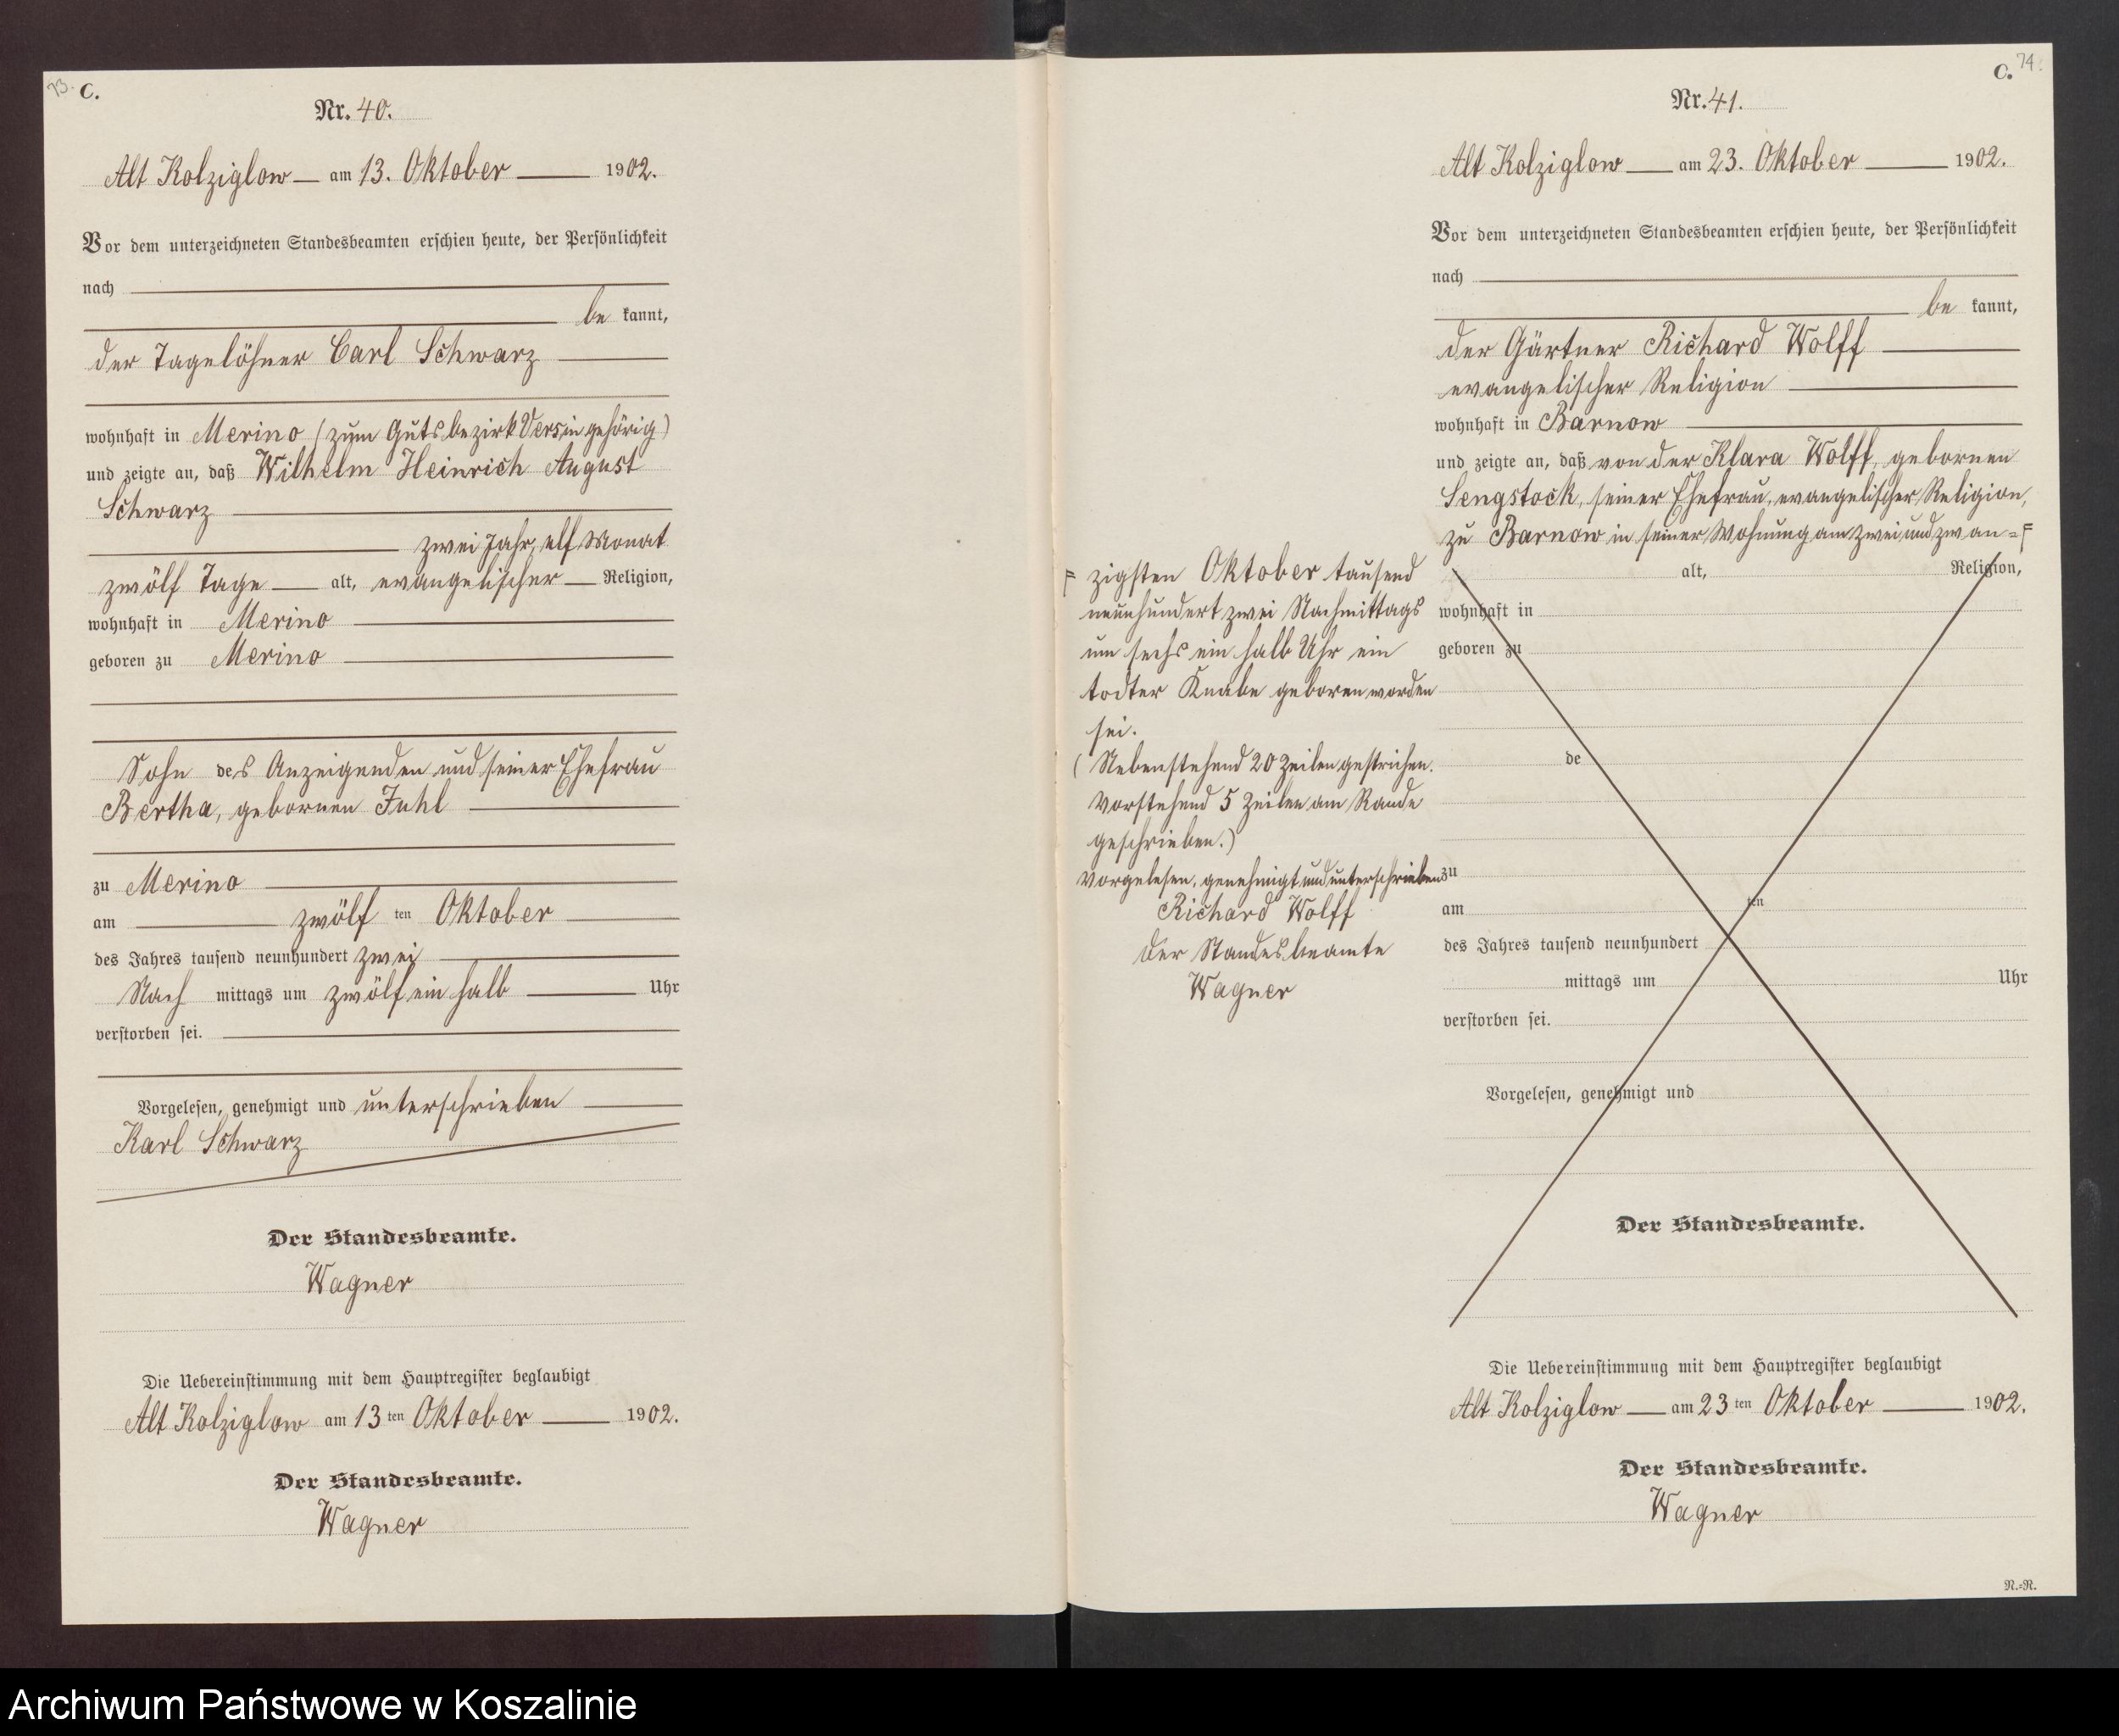 73. C.
Nr. 40.
Alt Kolziglow am 13. Oktober 1902.
Vor dem unterzeichneten Standesbeamten erschien heute, der Persönlichkeit
nach
be kannt,
der Tagelöhner Carl Schwarz
wohnhaft in Merino (zum Gutsbezirk Versin gehörig)
und zeigte an, daß Wilhelm Heinrich August
Schwarz
zwei Jahr, elf Monat
zwölf Tage alt, evangelischer Religion,
wohnhaft in Merino
geboren zu Merino
Sohn des Anzeigenden und seiner Ehefrau
Bertha, gebornen Juhl
zu Merino
am zwölf ten Oktober
des Jahres tausend neunhundert zwei
Nach mittags um zwölf ein halb Uhr
verstorben sei.
Vorgelesen, genehmigt und unterschrieben
Karl Schwarz
Der Standesbeamte.
Wagner
Die Uebereinstimmung mit dem Hauptregister beglaubigt
Alt Kolziglow am 13 ten Oktober 1902.
Der Standesbeamte.
Wagner
C. 74.
Nr. 41.
Alt Kolziglow am 23. Oktober 1902.
Vor dem unterzeichneten Standesbeamten erschien heute, der Persönlichkeit
nach
be kannt,
der Gärtner Richard Wolff
evangelischer Religion
wohnhaft in Barnow
und zeigte an, daß von der Klara Wolff, gebornen
Sengstock, seiner Ehefrau, evangelischer Religion,
zu Barnow in seiner Wohnung am zwei und zwan =
zigsten Oktober tausend
neunhundert zwei Nachmittags
um sechs ein halb Uhr ein
todter Knabe geboren worden
sei.
(Nebenstehend 20 Zeilen gestrichen.
Vorstehend 5 Zeilen am Rande
geschrieben.)
Vorgelesen, genehmigt und unterschrieben
Richard Wolff
Der Standesbeamte
Wagner
alt, Religion,
wohnhaft in
geboren zu
de
zu
am ten
des Jahres tausend neunhundert
mittags um Uhr
verstorben sei.
Vorgelesen, genehmigt und
Der Standesbeamte.
Die Uebereinstimmung mit dem Hauptregister beglaubigt
Alt Kolziglow am 23 ten Oktober 1902.
Der Standesbeamte.
Wagner
N.=N.
Archiwum Państwowe w Koszalinie